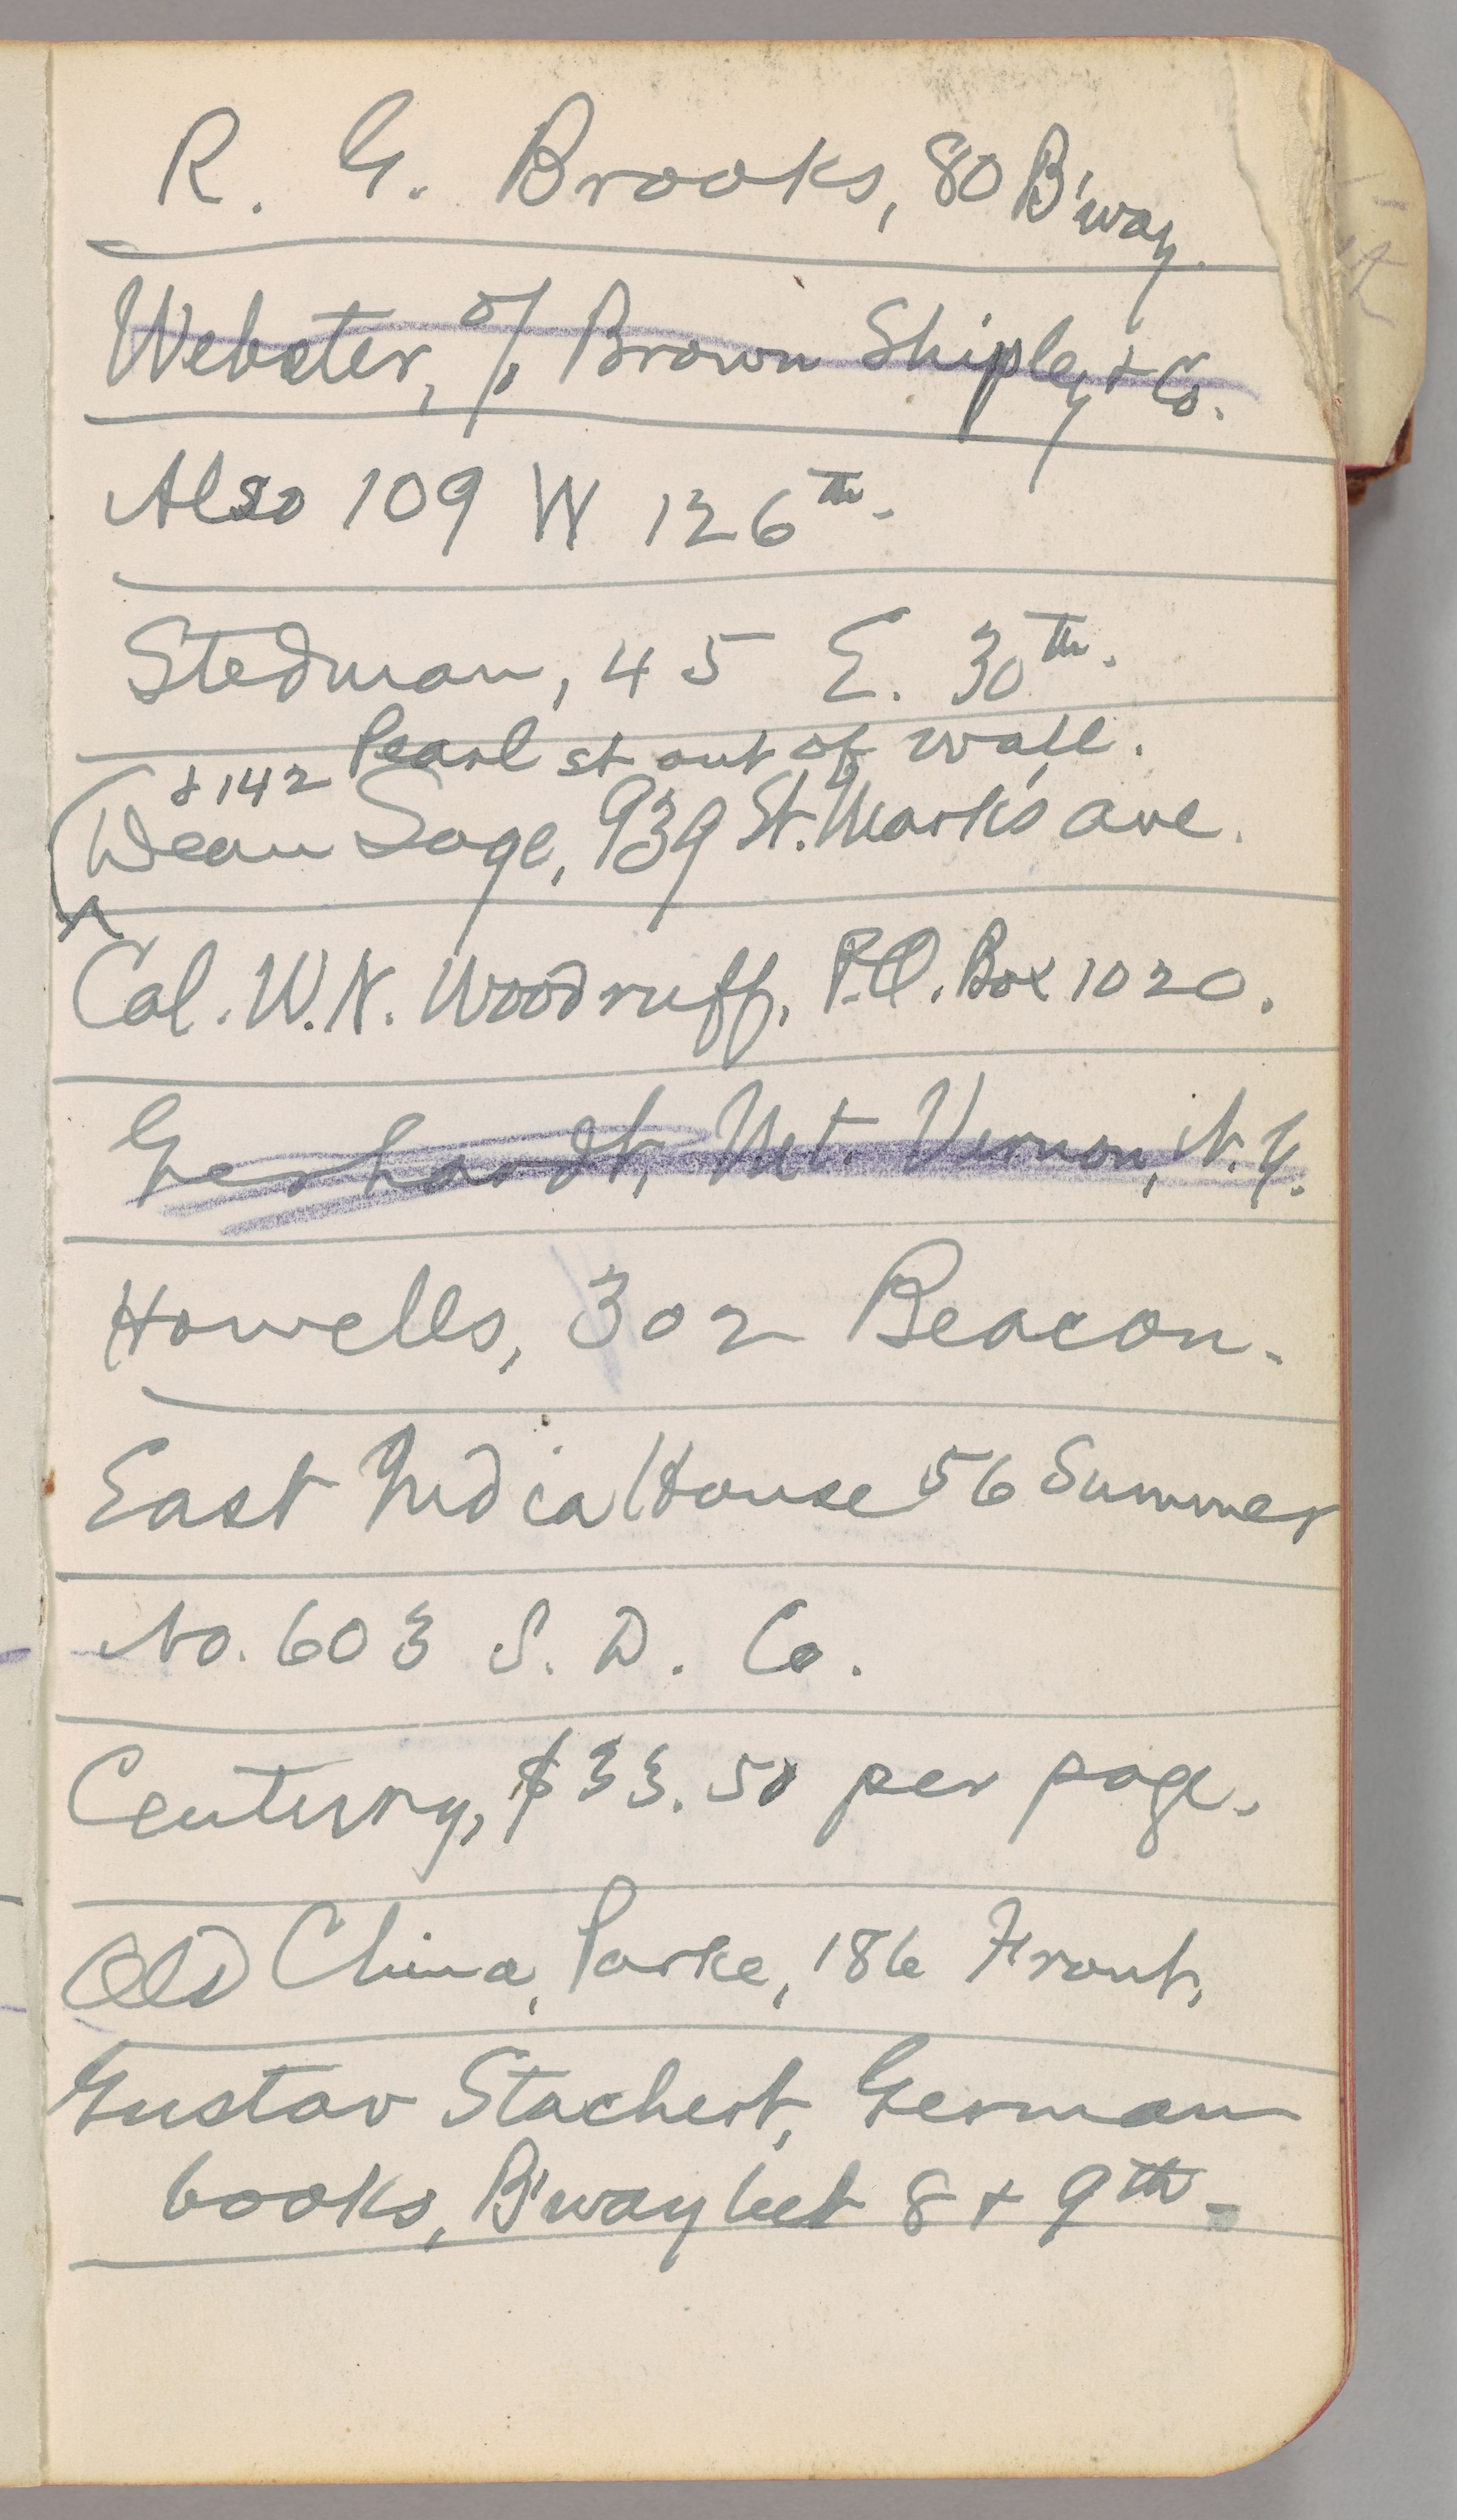 R. G. Brooks, 80 B'way.
Webster, c/o Brown Shipley & Co.
Also 109 W 126th.
Stedman, 45 E. 30th.
& 142 Pearl st out of Wall.
Dean Sage, 939 St. Mark's ave.
Col. W. N. Woodruff, P.O. Box 1020.
Gerhardt, Mt. Vernon, N.Y.
Howells, 302 Beacon.
East India House 56 Summer
No. 603 S. D. Co.
Century, $33.50 per page.
Old China, Parke, 186 Front,
Gustav Stechert, German
books, B'way bet 8 & 9th-